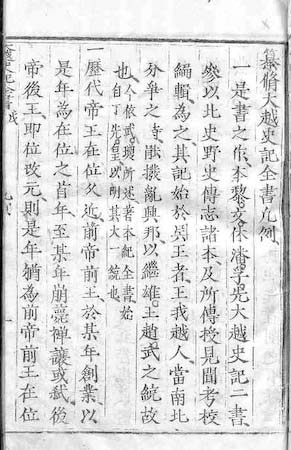 纂脩大越史記全書凡例
一是書之作本黎文休潘孚先大越史記二書
參以北史野史傳志諸本及所傳授見聞考校
編輯為之其記始於吳王者王我越人當南北
分爭之時能撥亂興邦以繼雄王趙武之統故
也今依武瓊所著本紀全書始
自丁先皇以明其大一統也
一歷代帝王在位久近前帝前王於某年創業以
是年為在位之首年至某年崩薨禪讓或弒後
帝後王即位改元則是年猶為前帝前王在位